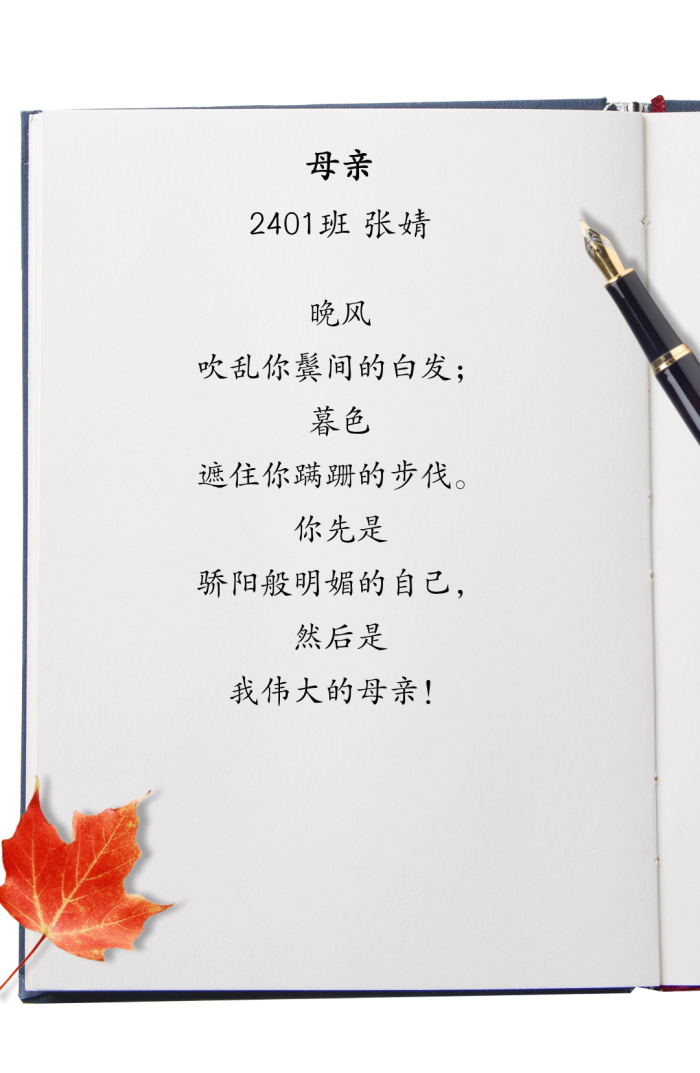 母亲
2401班 张婧
晚风
吹乱你鬓间的白发；
暮色
遮住你蹒跚的步伐。
你先是
骄阳般明媚的自己，
然后是
我伟大的母亲！